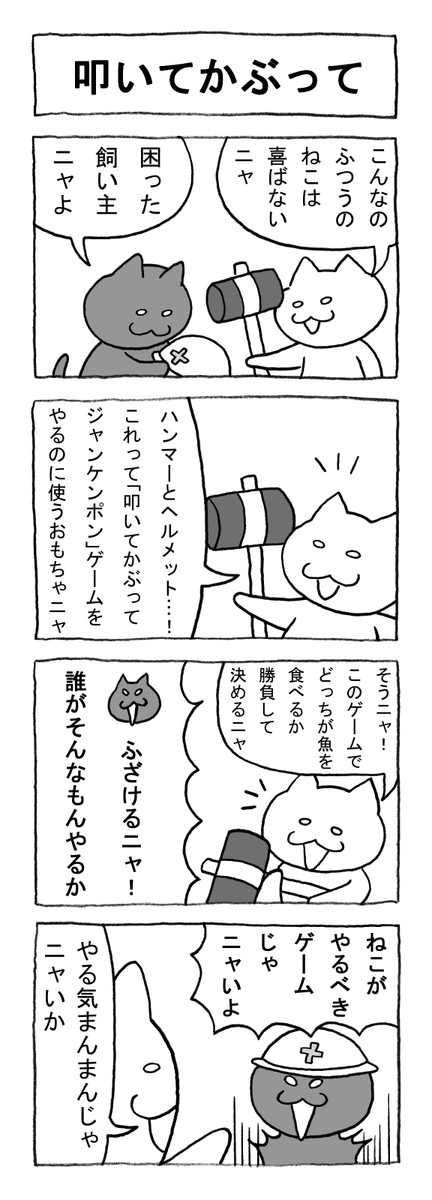 叩いてかぶって
こんなの
ふつうの
ねこは
喜ばない
ニャ
困った
飼い主
ニャよ
ハンマーとヘルメット…！
これって「叩いてかぶって
ジャンケンポン」ゲームを
やるのに使うおもちゃニャ
そうニャ！
このゲームで
どっちが魚を
食べるか
勝負して
決めるニャ
ふざけるニャ！
誰がそんなもんやるか
ねこが
やるべき
ゲーム
じゃ
ニャいよ
やる気まんまんじゃ
ニャいか